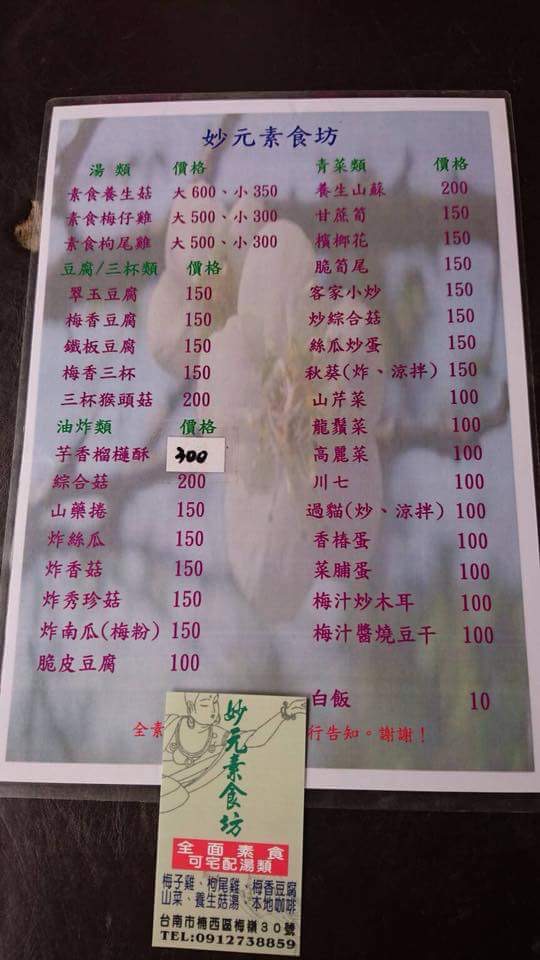 妙元素食坊
湯類 價格
素食養生菇 大600、小350
素食梅仔雞 大500、小300
素食枸尾雞 大500、小300
豆腐/三杯類 價格
翠玉豆腐 150
梅香豆腐 150
鐵板豆腐 150
梅香三杯 150
三杯猴頭菇 200
油炸類 價格
芋香榴槤酥 300
綜合菇 200
山藥捲 150
炸絲瓜 150
炸香菇 150
炸秀珍菇 150
炸南瓜(梅粉) 150
脆皮豆腐 100
青菜類 價格
養生山蘇 200
甘蔗筍 150
檳榔花 150
脆筍尾 150
客家小炒 150
炒綜合菇 150
絲瓜炒蛋 150
秋葵(炸、涼拌) 150
山芹菜 100
龍鬚菜 100
高麗菜 100
川七 100
過貓(炒、涼拌) 100
香椿蛋 100
菜脯蛋 100
梅汁炒木耳 100
梅汁醬燒豆干 100
白飯 10
全素 行告知。謝謝！
妙元素食坊
全面素食
可宅配湯類
梅子雞、枸尾雞、梅香豆腐
山菜、養生菇湯、本地咖啡
台南市楠西區梅嶺30號
TEL:0912738859